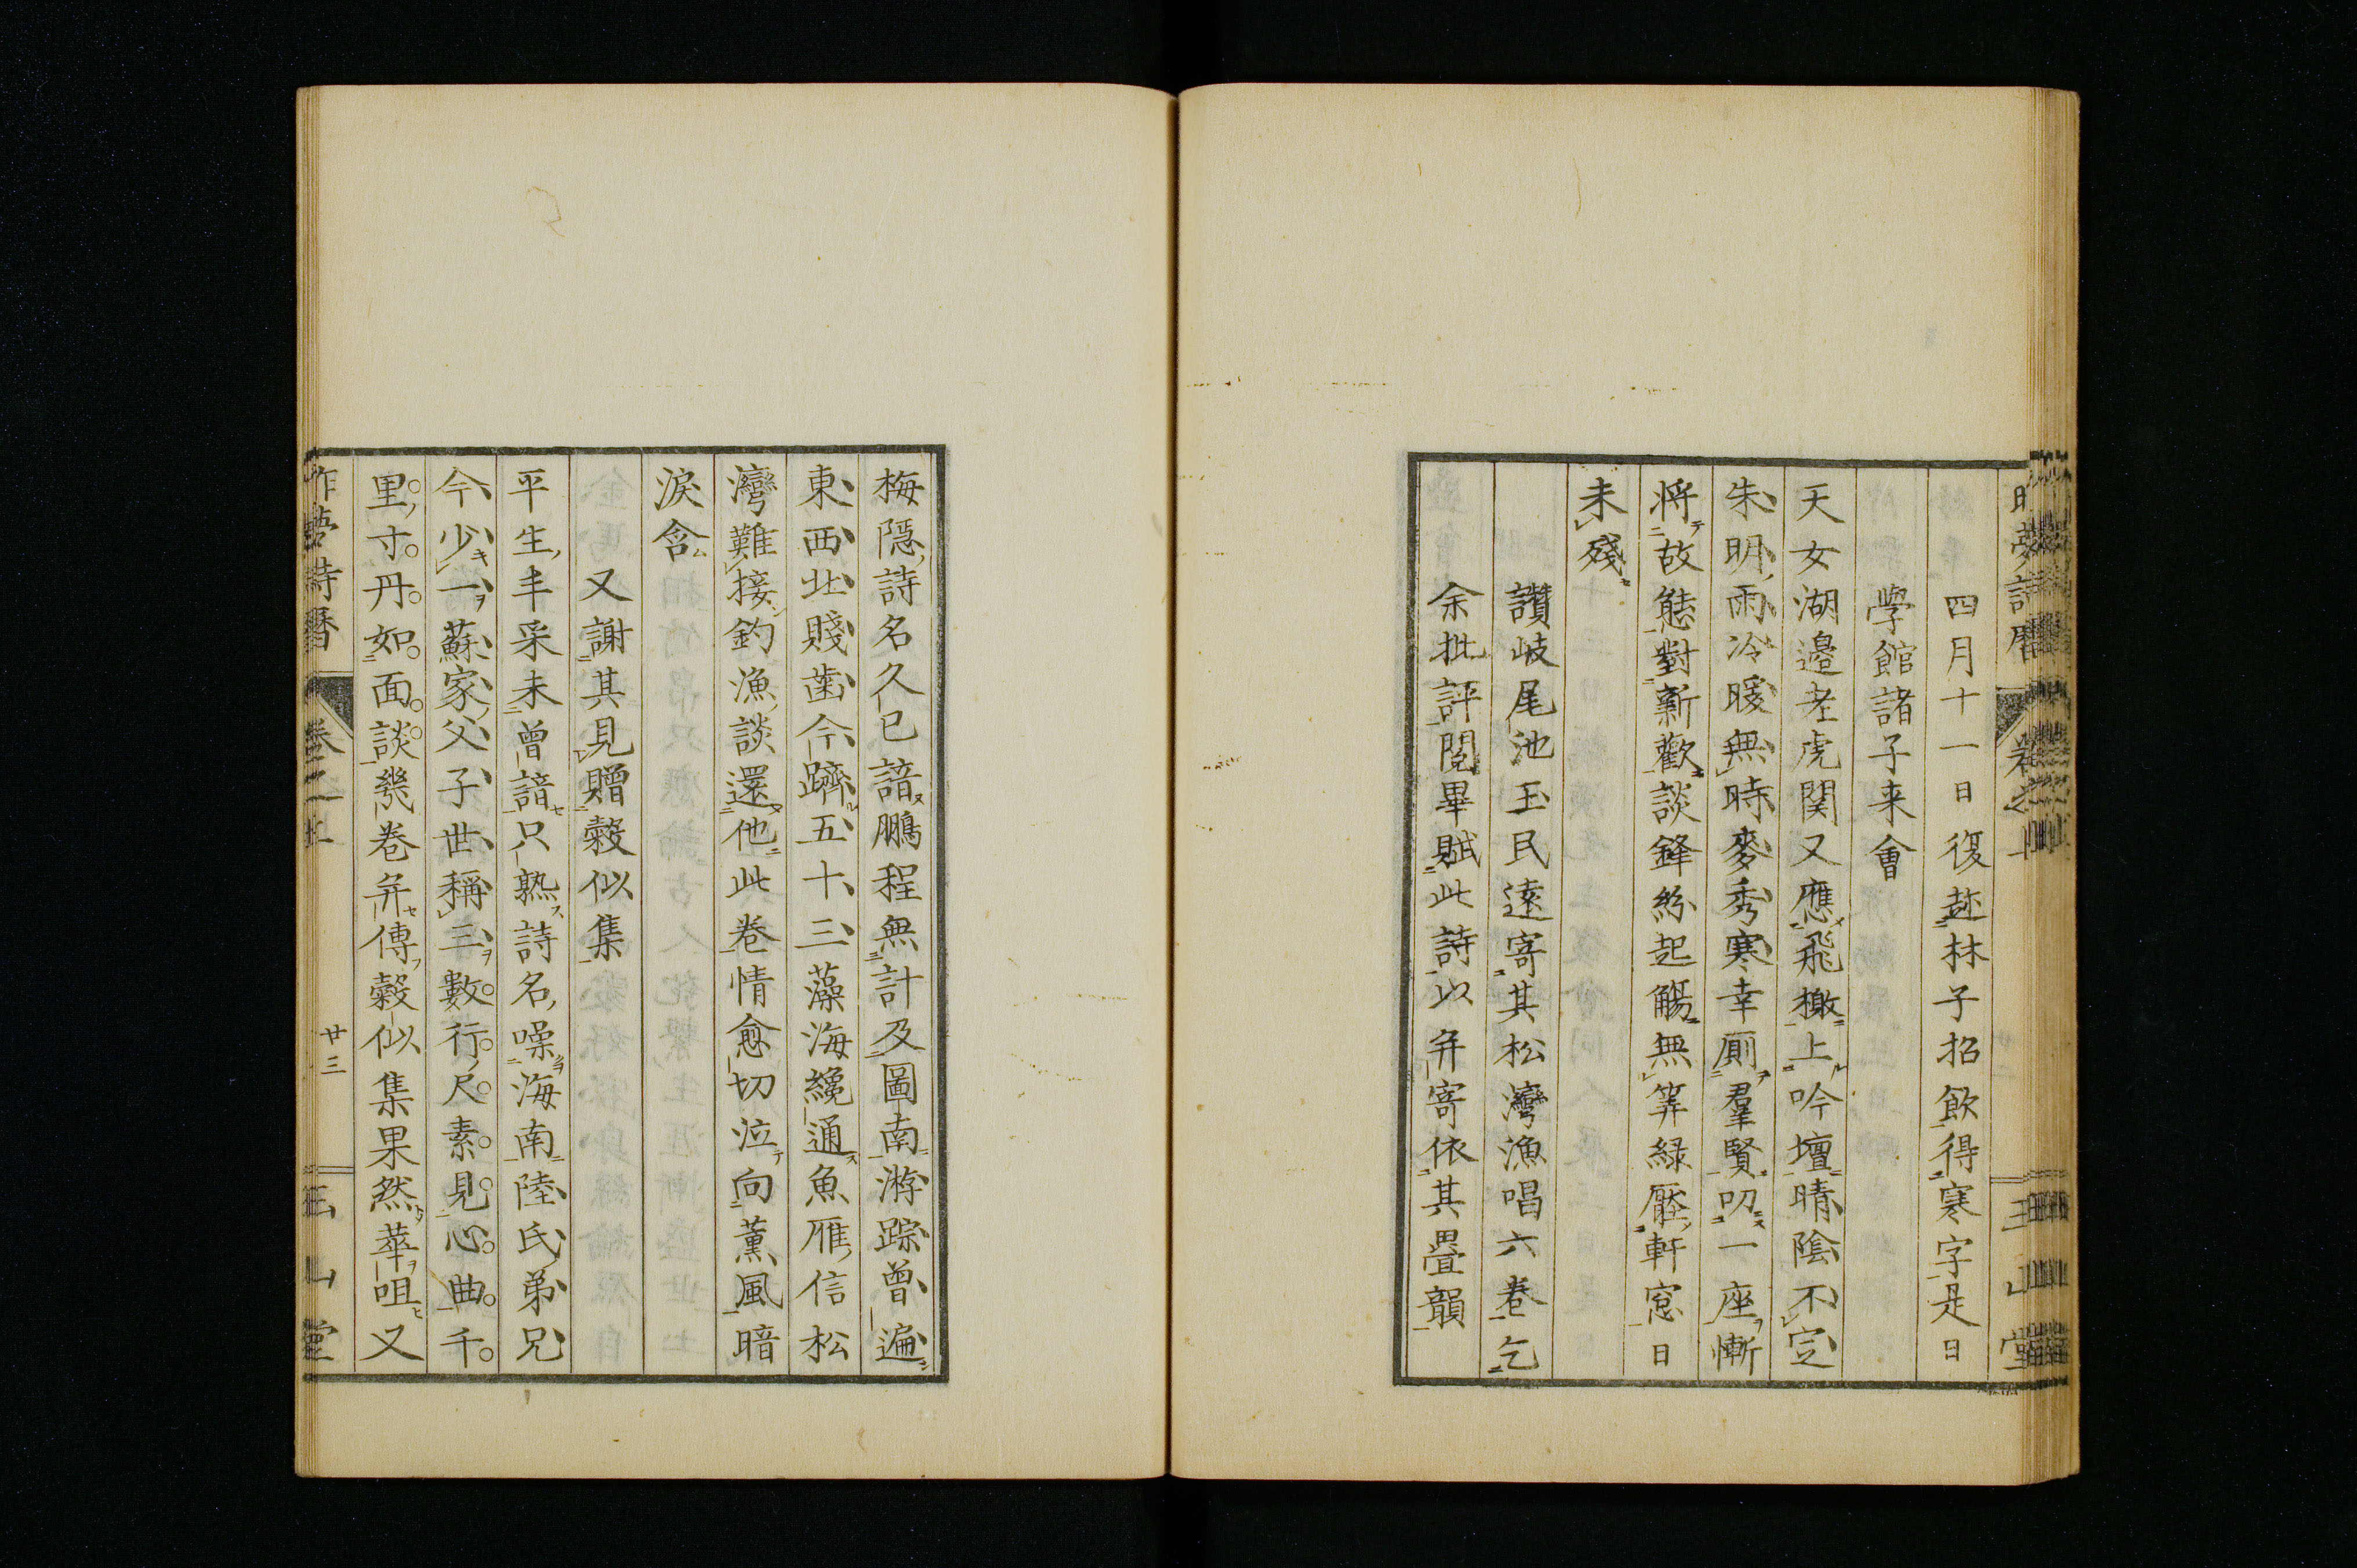 四月十一日復趂林子招飲得寒字是日
學館諸子来會
天女湖邉老虎関又應飛檄上吟壇晴陰不定
朱明雨冷暖無時麥秀寒幸厠羣賢叨一座慚
将故態對新歡談鋒紛起觴無筭緑壓軒窓日
未殘
讃岐尾池玉民遠寄其松灣漁唱六卷乞
余批評閲畢賦此詩以弁寄依其畳韻
梅隠詩名久已諳鵬程無計及圖南游踪曾遍
東西北賤齒今躋五十三藻海纔通魚雁信松
灣難接釣漁談還他此卷情愈切泣向薫風暗
淚含
又謝其見贈穀似集
平生丰采未曾諳只熟詩名噪海南陸氏弟兄
今少一蘇家父子世稱三數行尺素見心曲千
里寸丹如面談幾卷弁傳穀似集果然華咀又
昨夢詩暦
卷之上
廿三
玉山堂